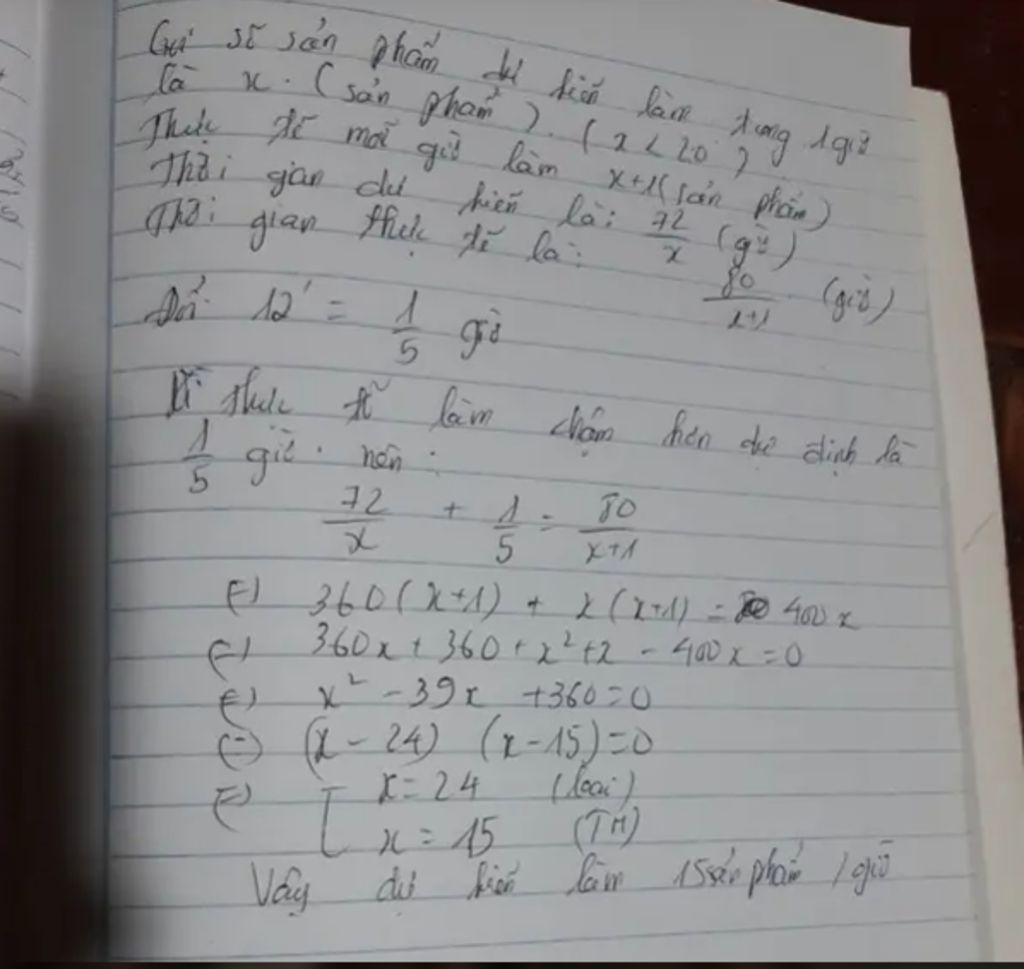 Gọi số sản phẩm dự kiến làm trong 1 giờ
là x. (sản phẩm). (x < 20)
Thực tế mỗi giờ làm x+1 (sản phẩm)
Thời gian dự kiến là: 72/x (giờ)
Thời gian thực tế là: 80/x+1 (giờ)
Đổi 12' = 1/5 giờ
Vì thực tế làm chậm hơn dự định là
1/5 giờ. nên:
72/x + 1/5 = 80/x+1
(=) 360(x+1) + x(x+1) = 400x
(=) 360x + 360 + x² + x - 400x = 0
(=) x² - 39x + 360 = 0
(=) (x - 24) (x - 15) = 0
(=) [ x = 24 (loại)
x = 15 (TM)
Vậy dự kiến làm 15 sản phẩm / giờ